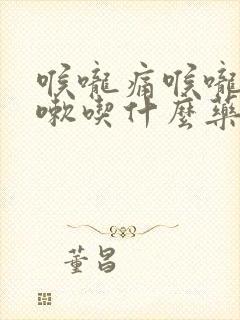 喉嚨痛喉嚨
嗽喫什麼藥
董昌